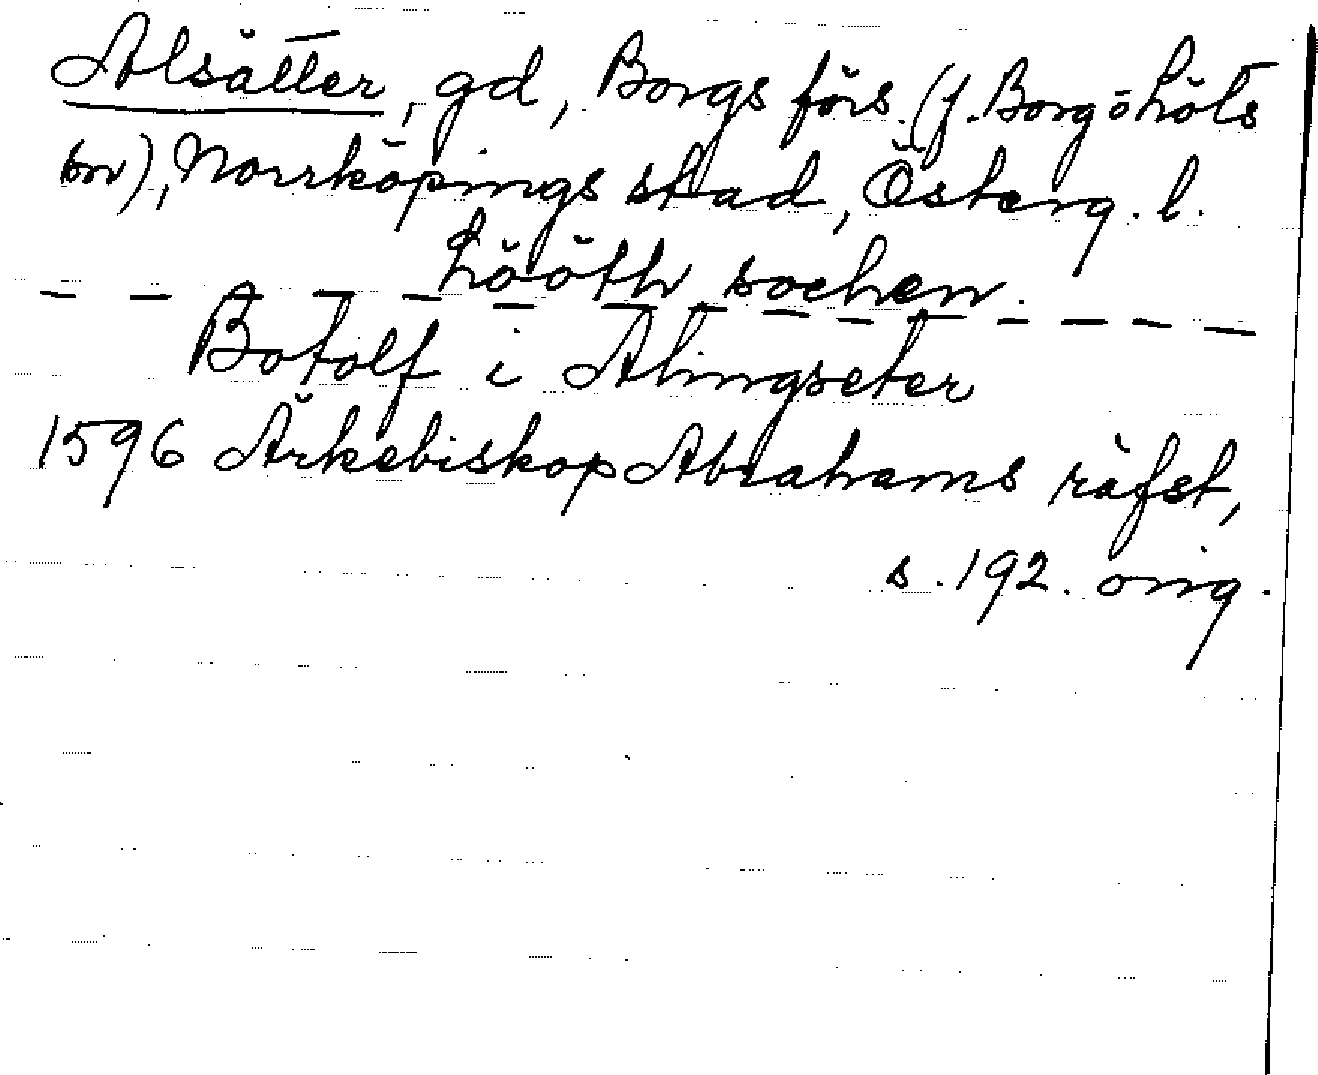 Alsätter, gd, Borgs förs. (f. Borg o Löts
sn), Norrköpings stad, Österg. l.
Lööth sochen.
Botolf i Alingseter
1596 Ärkebiskop Abrahams räfst,
s. 192. orig.